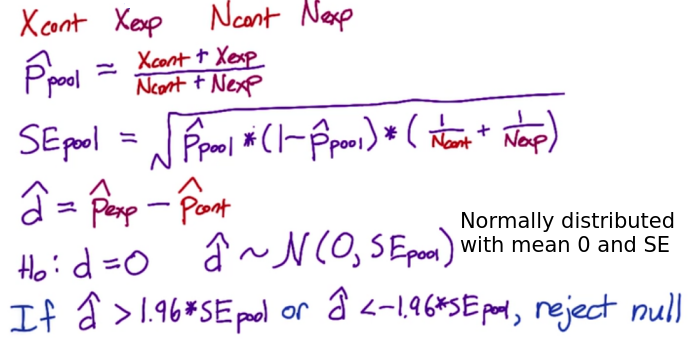 Xcont Xexp Ncont Nexp
P̂pool = (Xcont + Xexp) / (Ncont + Nexp)
SEpool = √(P̂pool * (1-P̂pool) * (1/Ncont + 1/Nexp))
d̂ = P̂exp - P̂cont
H₀: d = 0 d̂ ~ N(0, SEpool)
Normally distributed
with mean 0 and SE
If d̂ > 1.96*SEpool or d̂ < -1.96*SEpool, reject null